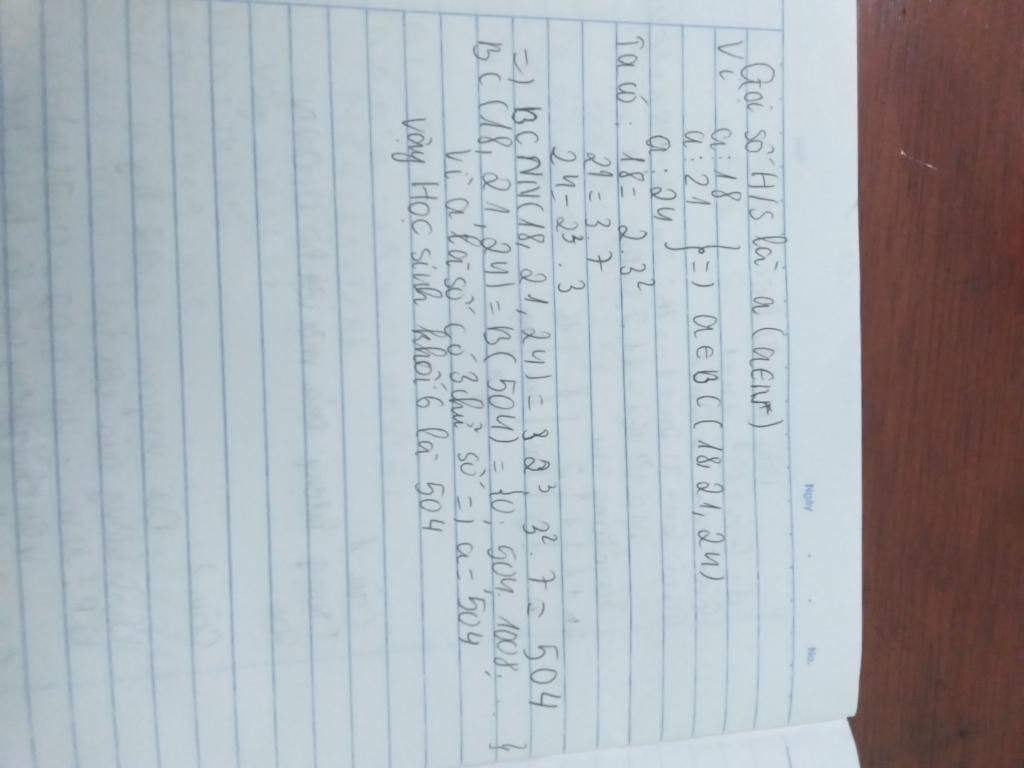 Ngày . . No.
Gọi số H/S là a (a∈N*)
Vì a⋮18
a⋮21 } => a ∈ BC (18, 21, 24)
a⋮24
Ta có: 18 = 2.3²
21 = 3.7
24 = 2³.3
=) BCNN(18, 21, 24) = 3 2³. 3². 7 = 504
BC (18, 21, 24) = B(504) = {0; 504; 1008; ... }
Vì a là số có 3 chữ số => a = 504
vậy Học sinh khối 6 là 504